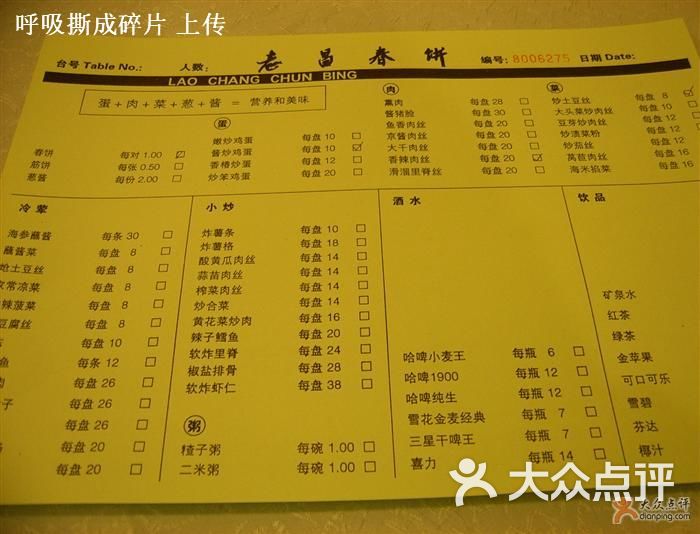 呼吸撕成碎片 上传
台号 Table No.: 人数: 老昌春饼 编号: 8006275 日期 Date:
LAO CHANG CHUN BING
蛋+肉+菜+葱+酱 = 营养和美味
春饼 每对 1.00
筋饼 每张 0.50
葱酱 每份 2.00
蛋
嫩炒鸡蛋 每盘 10
酱炒鸡蛋 每盘 10
香椿炒蛋 每盘 12
炒笨鸡蛋 每盘 20
肉
熏肉 每盘 28
酱猪脸 每盘 30
鱼香肉丝 每盘 20
京酱肉丝 每盘 20
大干肉丝 每盘 20
香辣肉丝 每盘 20
滑溜里脊丝 每盘 20
菜
炒土豆丝 每盘 8
大头菜炒肉丝 每盘 10
豆芽炒肉丝 每盘 12
炒渍菜粉 每盘 12
炒茄丝 每盘 12
莴苣肉丝 每盘 16
海米掐菜 每盘 16
冷荤
海参蘸酱 每条 30
蘸酱菜 每盘 8
炝土豆丝 每盘 8
家常凉菜 每盘 8
辣菠菜 每盘 8
豆腐丝 每盘 8
每盘 10
鱼 每条 12
肉 每盘 26
子 每盘 26
每盘 26
每盘 20
每盘 20
小炒
炸薯条 每盘 10
炸薯格 每盘 18
酸黄瓜肉丝 每盘 14
蒜苗肉丝 每盘 14
榨菜肉丝 每盘 14
炒合菜 每盘 14
黄花菜炒肉 每盘 16
辣子鳕鱼 每盘 20
软炸里脊 每盘 24
椒盐排骨 每盘 28
软炸虾仁 每盘 38
粥
楂子粥 每碗 1.00
二米粥 每碗 1.00
酒水
哈啤小麦王 每瓶 6
哈啤1900 每瓶 12
哈啤纯生 每瓶 12
雪花金麦经典 每瓶 7
三星干啤王 每瓶 7
喜力 每瓶 14
饮品
矿泉水
红茶
绿茶
金苹果
可口可乐
雪碧
芬达
椰汁
大众点评
大众点评
dianping.com